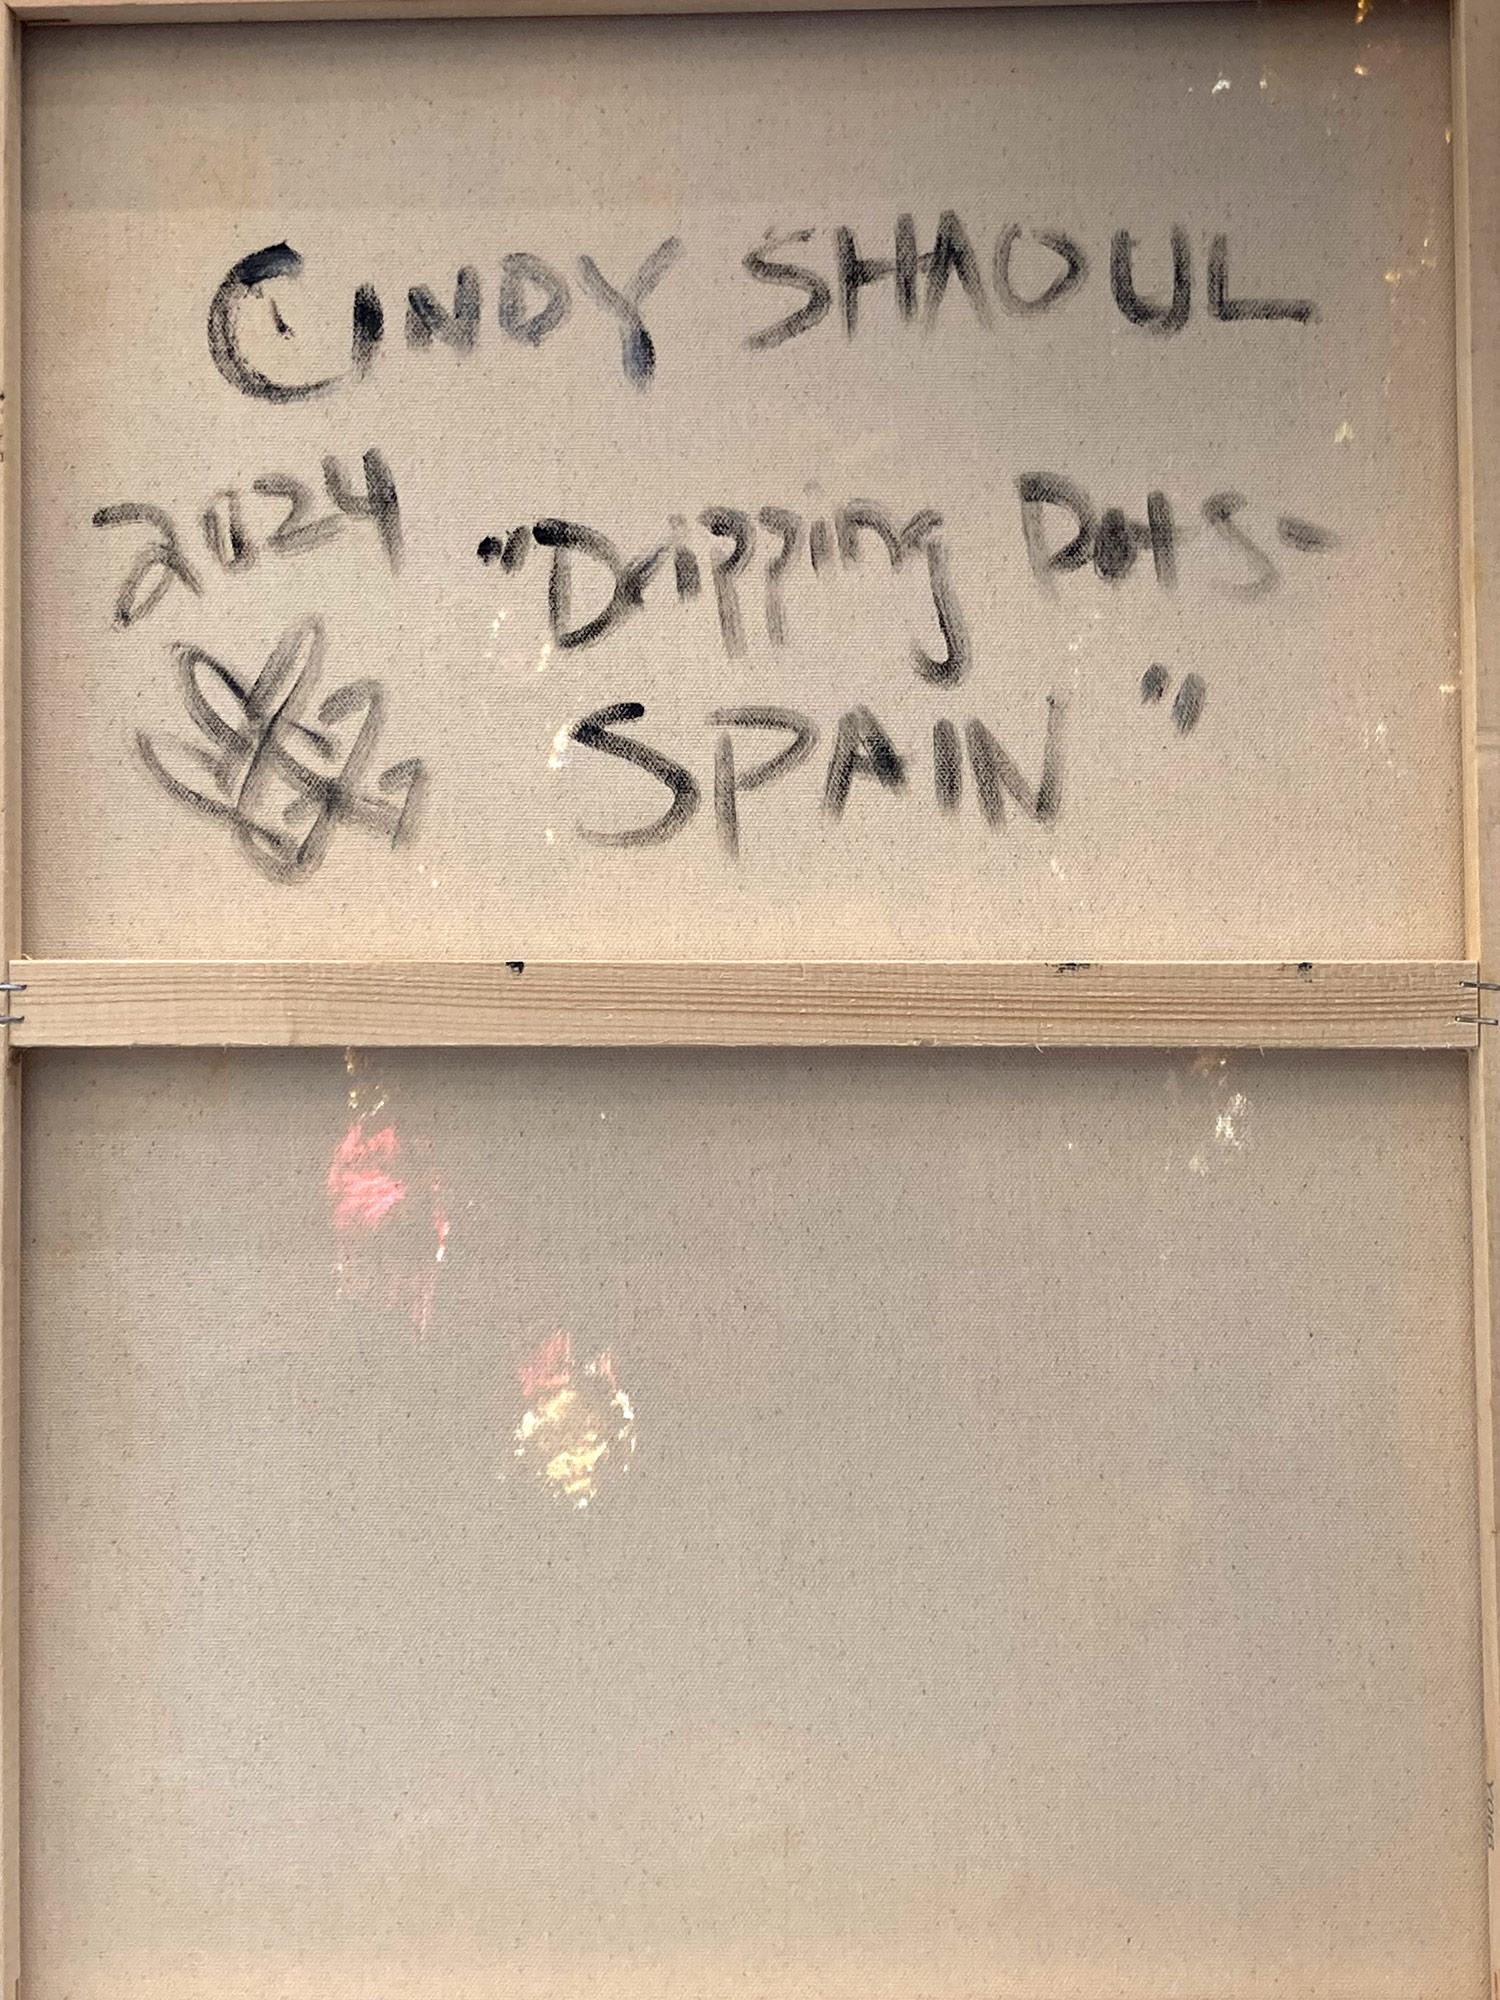 CINDY SHAOUL
2024 "Dripping Dots-
SPAIN"